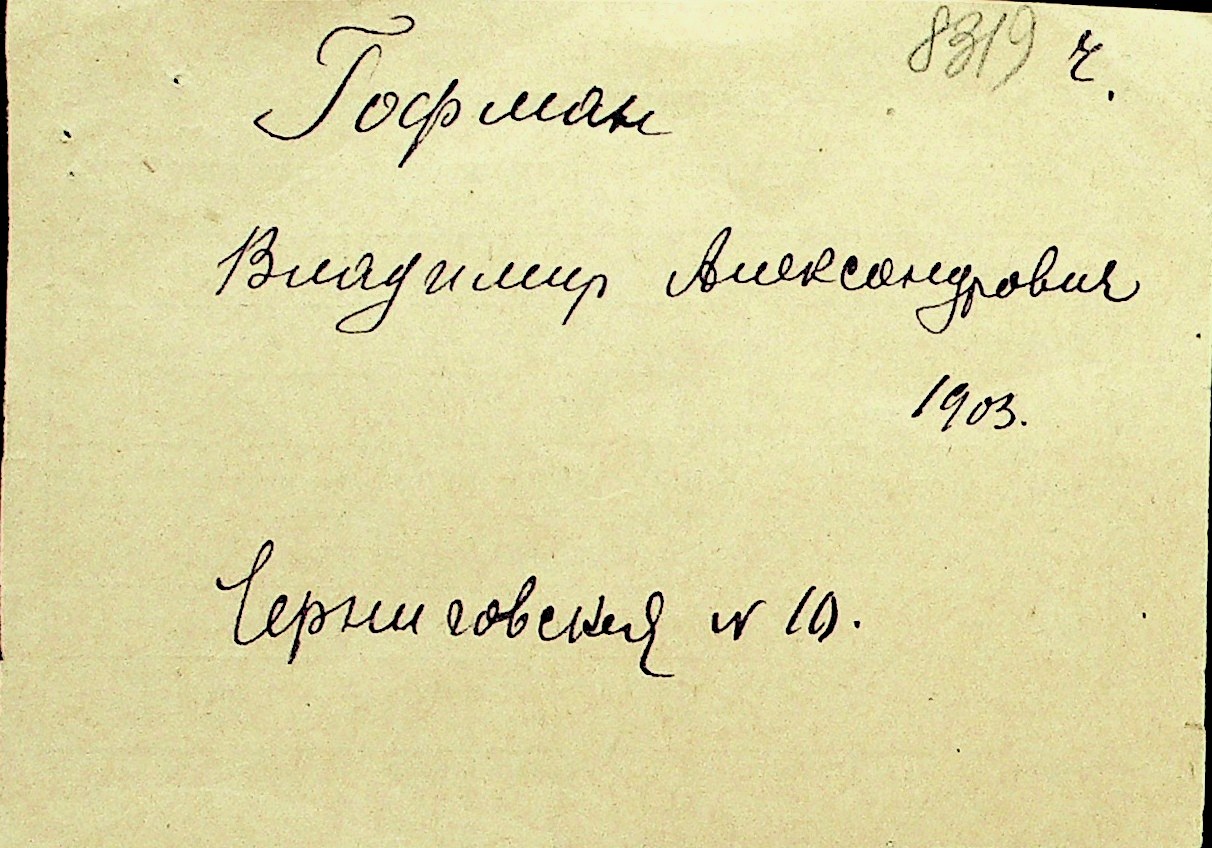 8319 ч.
Гофман
Владимир Александрович
1903.
Черниговская N 10.